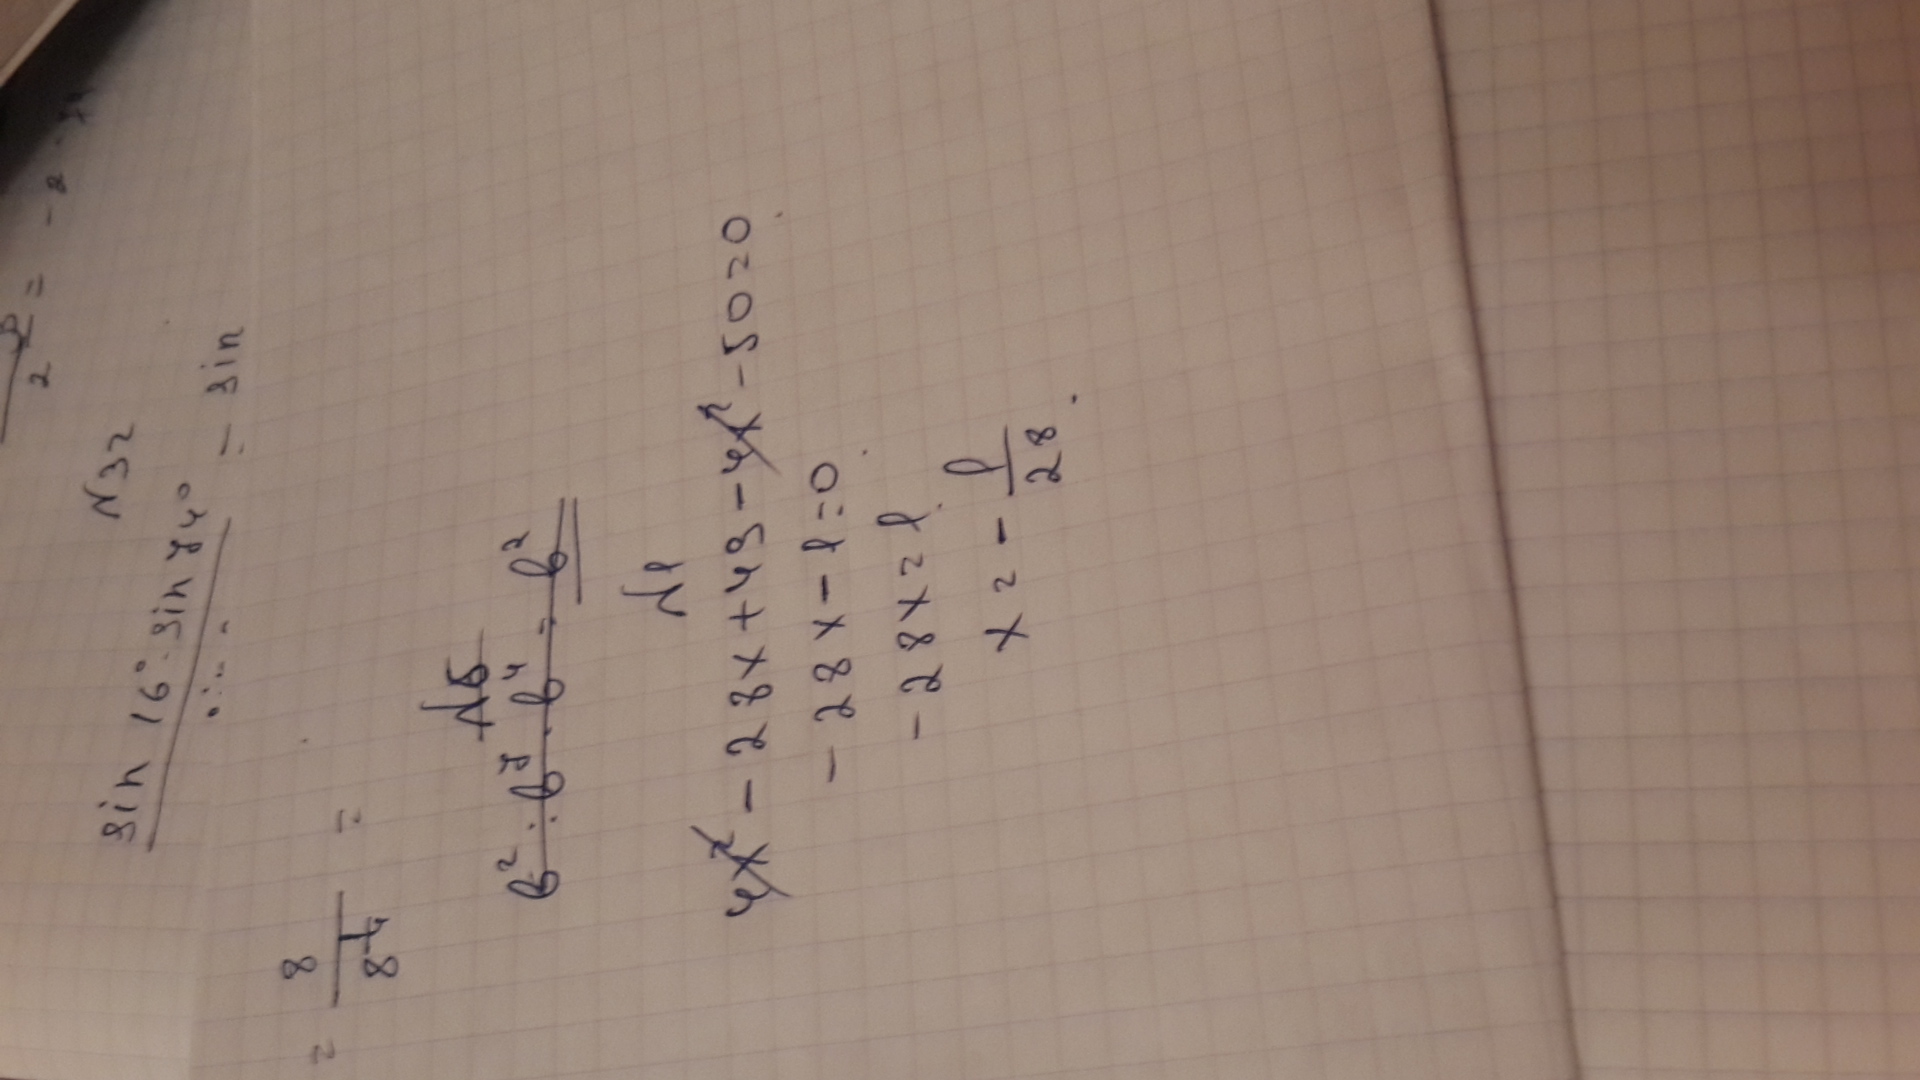 N32
sin 16° · sin 74°
= sin
= 8 / 8
N5
b² : b⁷ · b⁴ = b²
N1
4x² - 28x + 49 - 4x² - 50 = 0
- 28x - 1 = 0
- 28x = 1
x = - 1/28